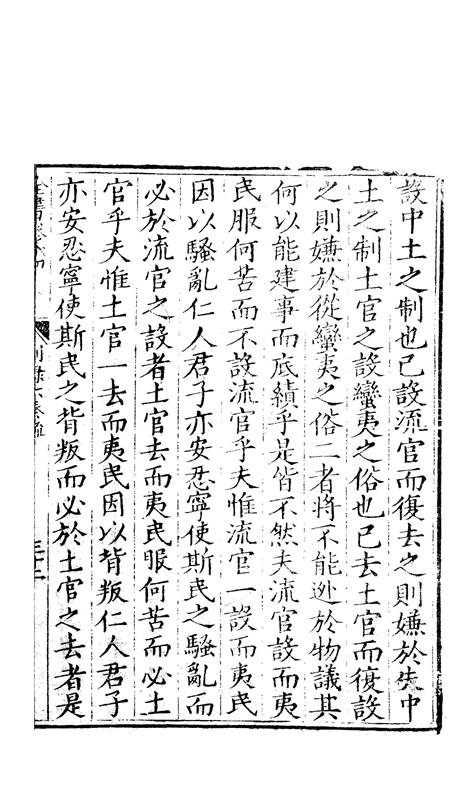 設中土之制也已設流官而復去之則嫌於失中
土之制土官之設蠻夷之俗也已去土官而復設
之則嫌於從蠻夷之俗二者將不能逃於物議其
何以能建事而底績乎是皆不然夫流官設而夷
民服何苦而不設流官乎夫惟流官一設而夷民
因以騷亂仁人君子亦安忍寧使斯民之騷亂而
必於流官之設者土官去而夷民服何苦而必土
官乎夫惟土官一去而夷民因以背叛仁人君子
亦安忍寧使斯民之背叛而必於土官之去者是